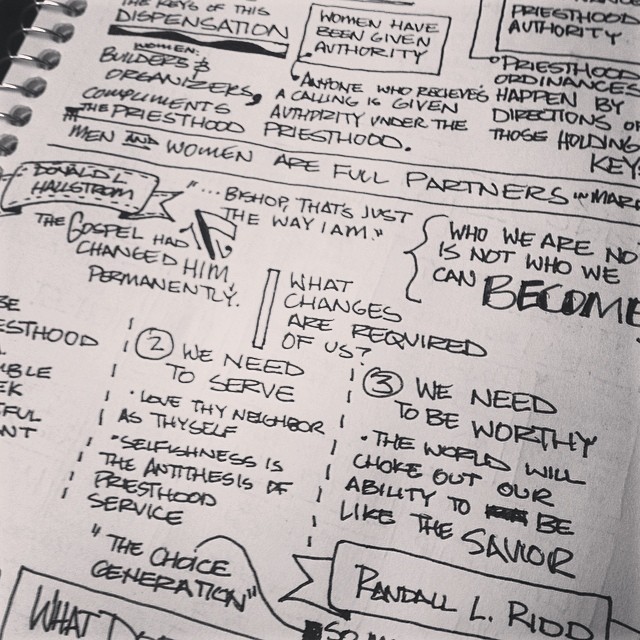 THE KEYS OF THIS
DISPENSATION
WOMEN:
BUILDERS &
ORGANIZERS,
COMPLIMENTS
THE PRIESTHOOD
WOMEN HAVE
BEEN GIVEN
AUTHORITY
• ANYONE WHO RECIEVES
A CALLING IS GIVEN
AUTHORITY UNDER THE
PRIESTHOOD.
PRIESTHOOD
AUTHORITY
• PRIESTHOOD
ORDINANCES
HAPPEN BY
DIRECTIONS
THOSE HOLDING
KEYS
MEN AND WOMEN ARE FULL PARTNERS IN
DONALD L.
HALLSTROM
"... BISHOP, THAT'S JUST
THE WAY I AM."
THE GOSPEL HAD
CHANGED HIM,
PERMANENTLY.
WHO WE ARE NO
IS NOT WHO WE
CAN BECOME
WHAT
CHANGES
ARE REQUIRED
OF US?
BE
ESTHOOD
UBLE
EK
FUL
NT
2 WE NEED
TO SERVE
• LOVE THY NEIGHBOR
AS THYSELF
• SELFISHNESS IS
THE ANTITHESIS OF
PRIESTHOOD
SERVICE
3 WE NEED
TO BE WORTHY
• THE WORLD WILL
CHOKE OUT OUR
ABILITY TO BE
LIKE THE SAVIOR
"THE CHOICE
GENERATION"
RANDALL L. RIDD
WHAT